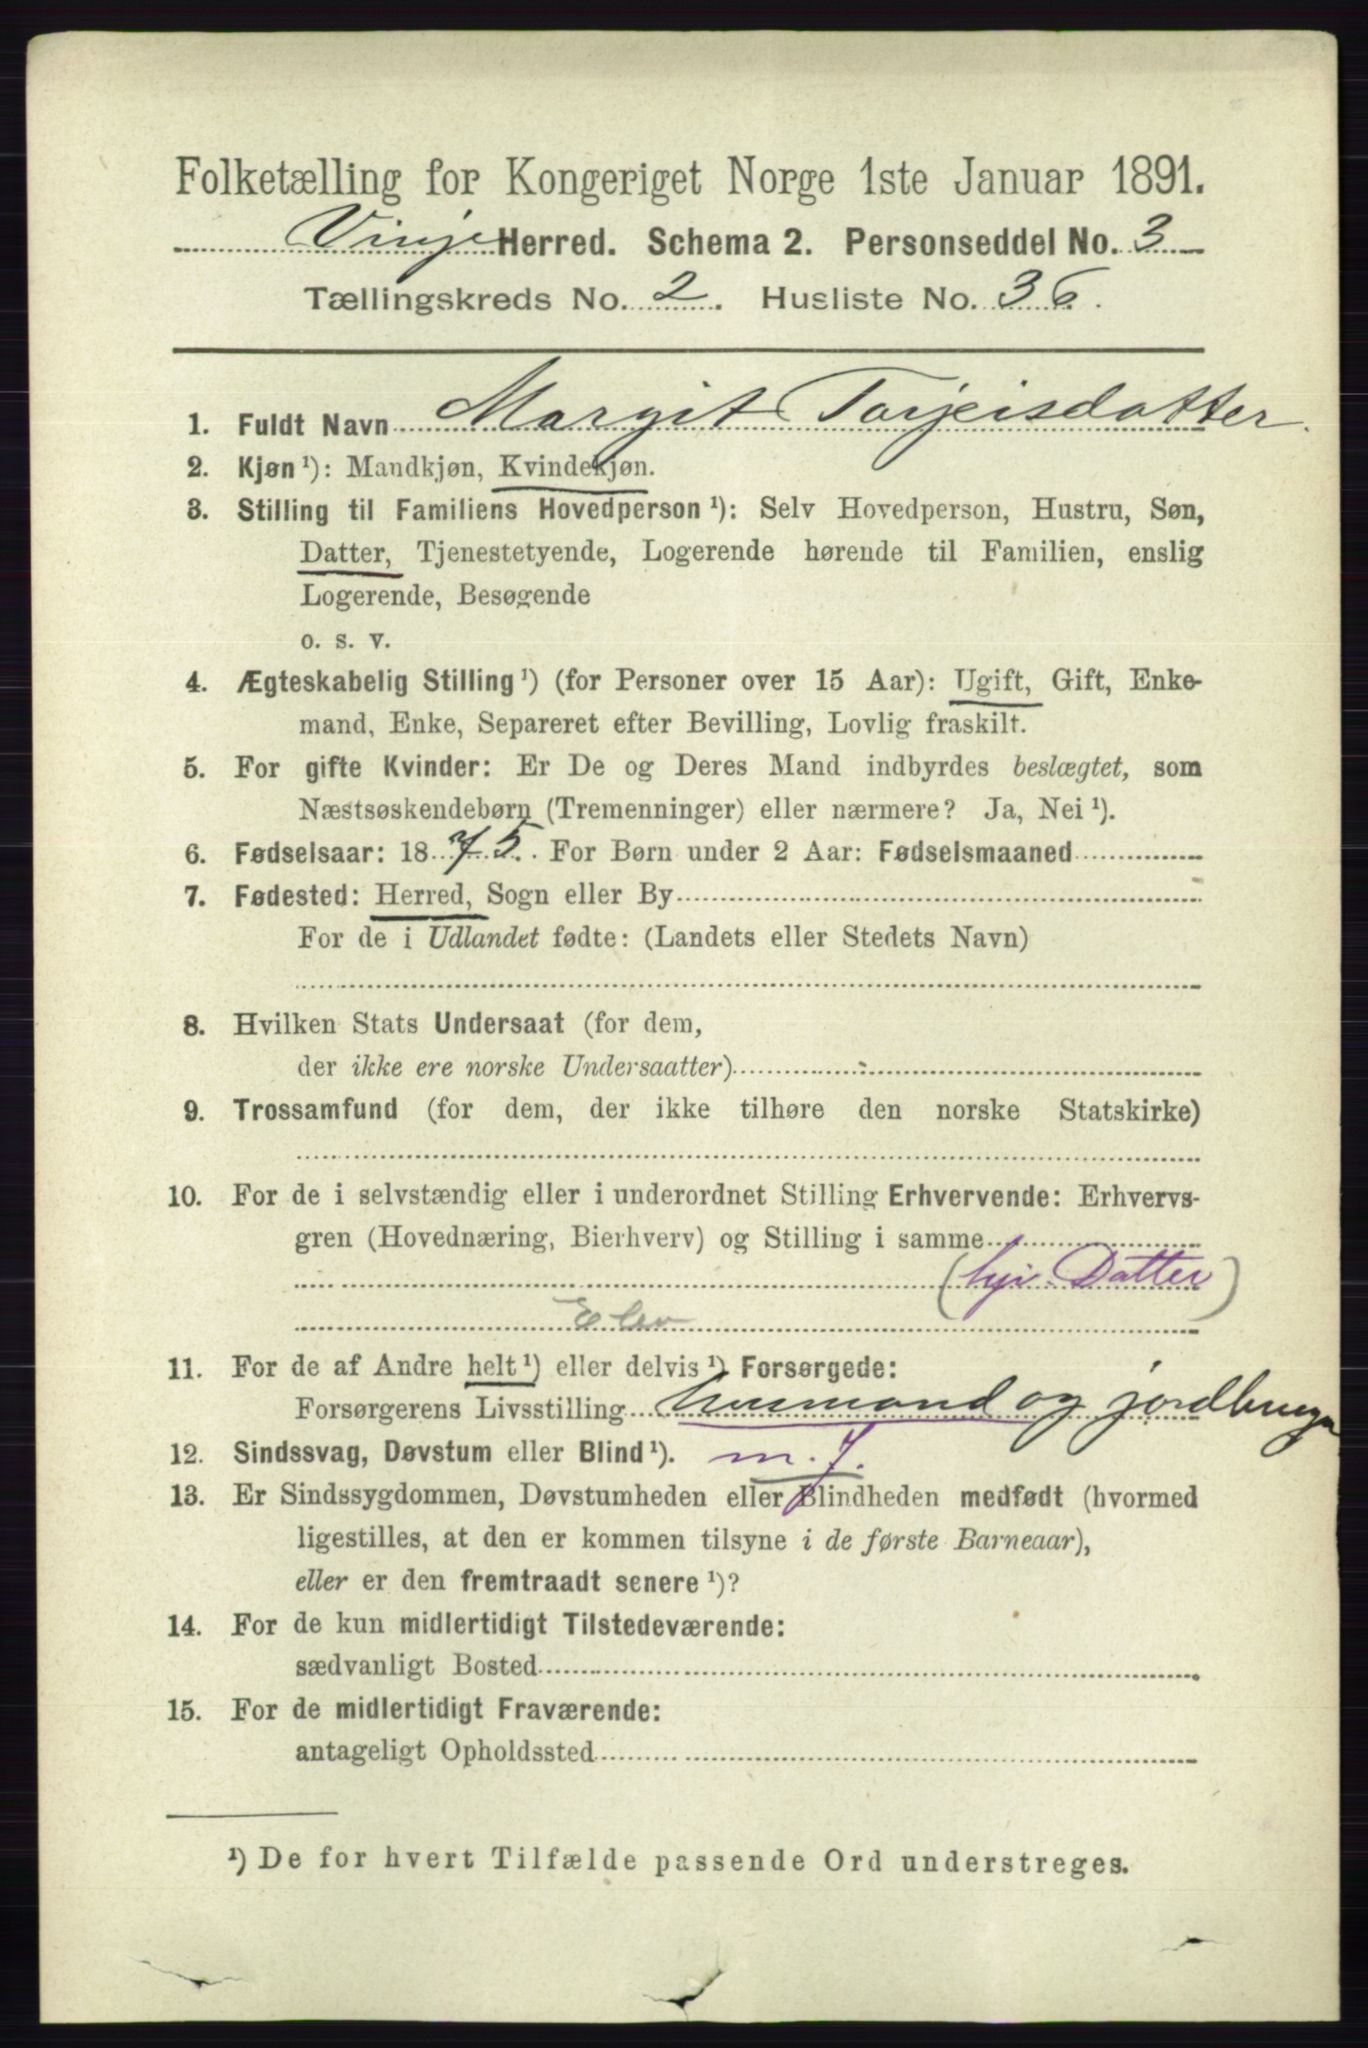 Folketælling for Kongeriget Norge 1ste Januar 1891.
Vinje Herred. Schema 2. Personseddel No. 3
Tællingskreds No. 2. Husliste No. 36.
1. Fuldt Navn Margit Torjeisdatter.
2. Kjøn ¹): Mandkjøn, Kvindekjøn.
3. Stilling til Familiens Hovedperson ¹): Selv Hovedperson, Hustru, Søn,
Datter, Tjenestetyende, Logerende hørende til Familien, enslig
Logerende, Besøgende
o. s. v.
4. Ægteskabelig Stilling ¹) (for Personer over 15 Aar): Ugift, Gift, Enke-
mand, Enke, Separeret efter Bevilling, Lovlig fraskilt.
5. For gifte Kvinder: Er De og Deres Mand indbyrdes beslægtet, som
Næstsøskendebørn (Tremenninger) eller nærmere? Ja, Nei ¹).
6. Fødselsaar: 1875. For Børn under 2 Aar: Fødselsmaaned
7. Fødested: Herred, Sogn eller By
For de i Udlandet fødte: (Landets eller Stedets Navn)
8. Hvilken Stats Undersaat (for dem,
der ikke ere norske Undersaatter)
9. Trossamfund (for dem, der ikke tilhøre den norske Statskirke)
10. For de i selvstændig eller i underordnet Stilling Erhvervende: Erhvervs-
gren (Hovednæring, Bierhverv) og Stilling i samme
(hjv. Datter)
Elev
11. For de af Andre helt ¹) eller delvis ¹) Forsørgede:
Forsørgerens Livsstilling husmand og jordbruger
12. Sindssvag, Døvstum eller Blind ¹). m. J.
13. Er Sindssygdommen, Døvstumheden eller Blindheden medfødt (hvormed
ligestilles, at den er kommen tilsyne i de første Barneaar),
eller er den fremtraadt senere ¹)?
14. For de kun midlertidigt Tilstedeværende:
sædvanligt Bosted
15. For de midlertidigt Fraværende:
antageligt Opholdssted
¹) De for hvert Tilfælde passende Ord understreges.